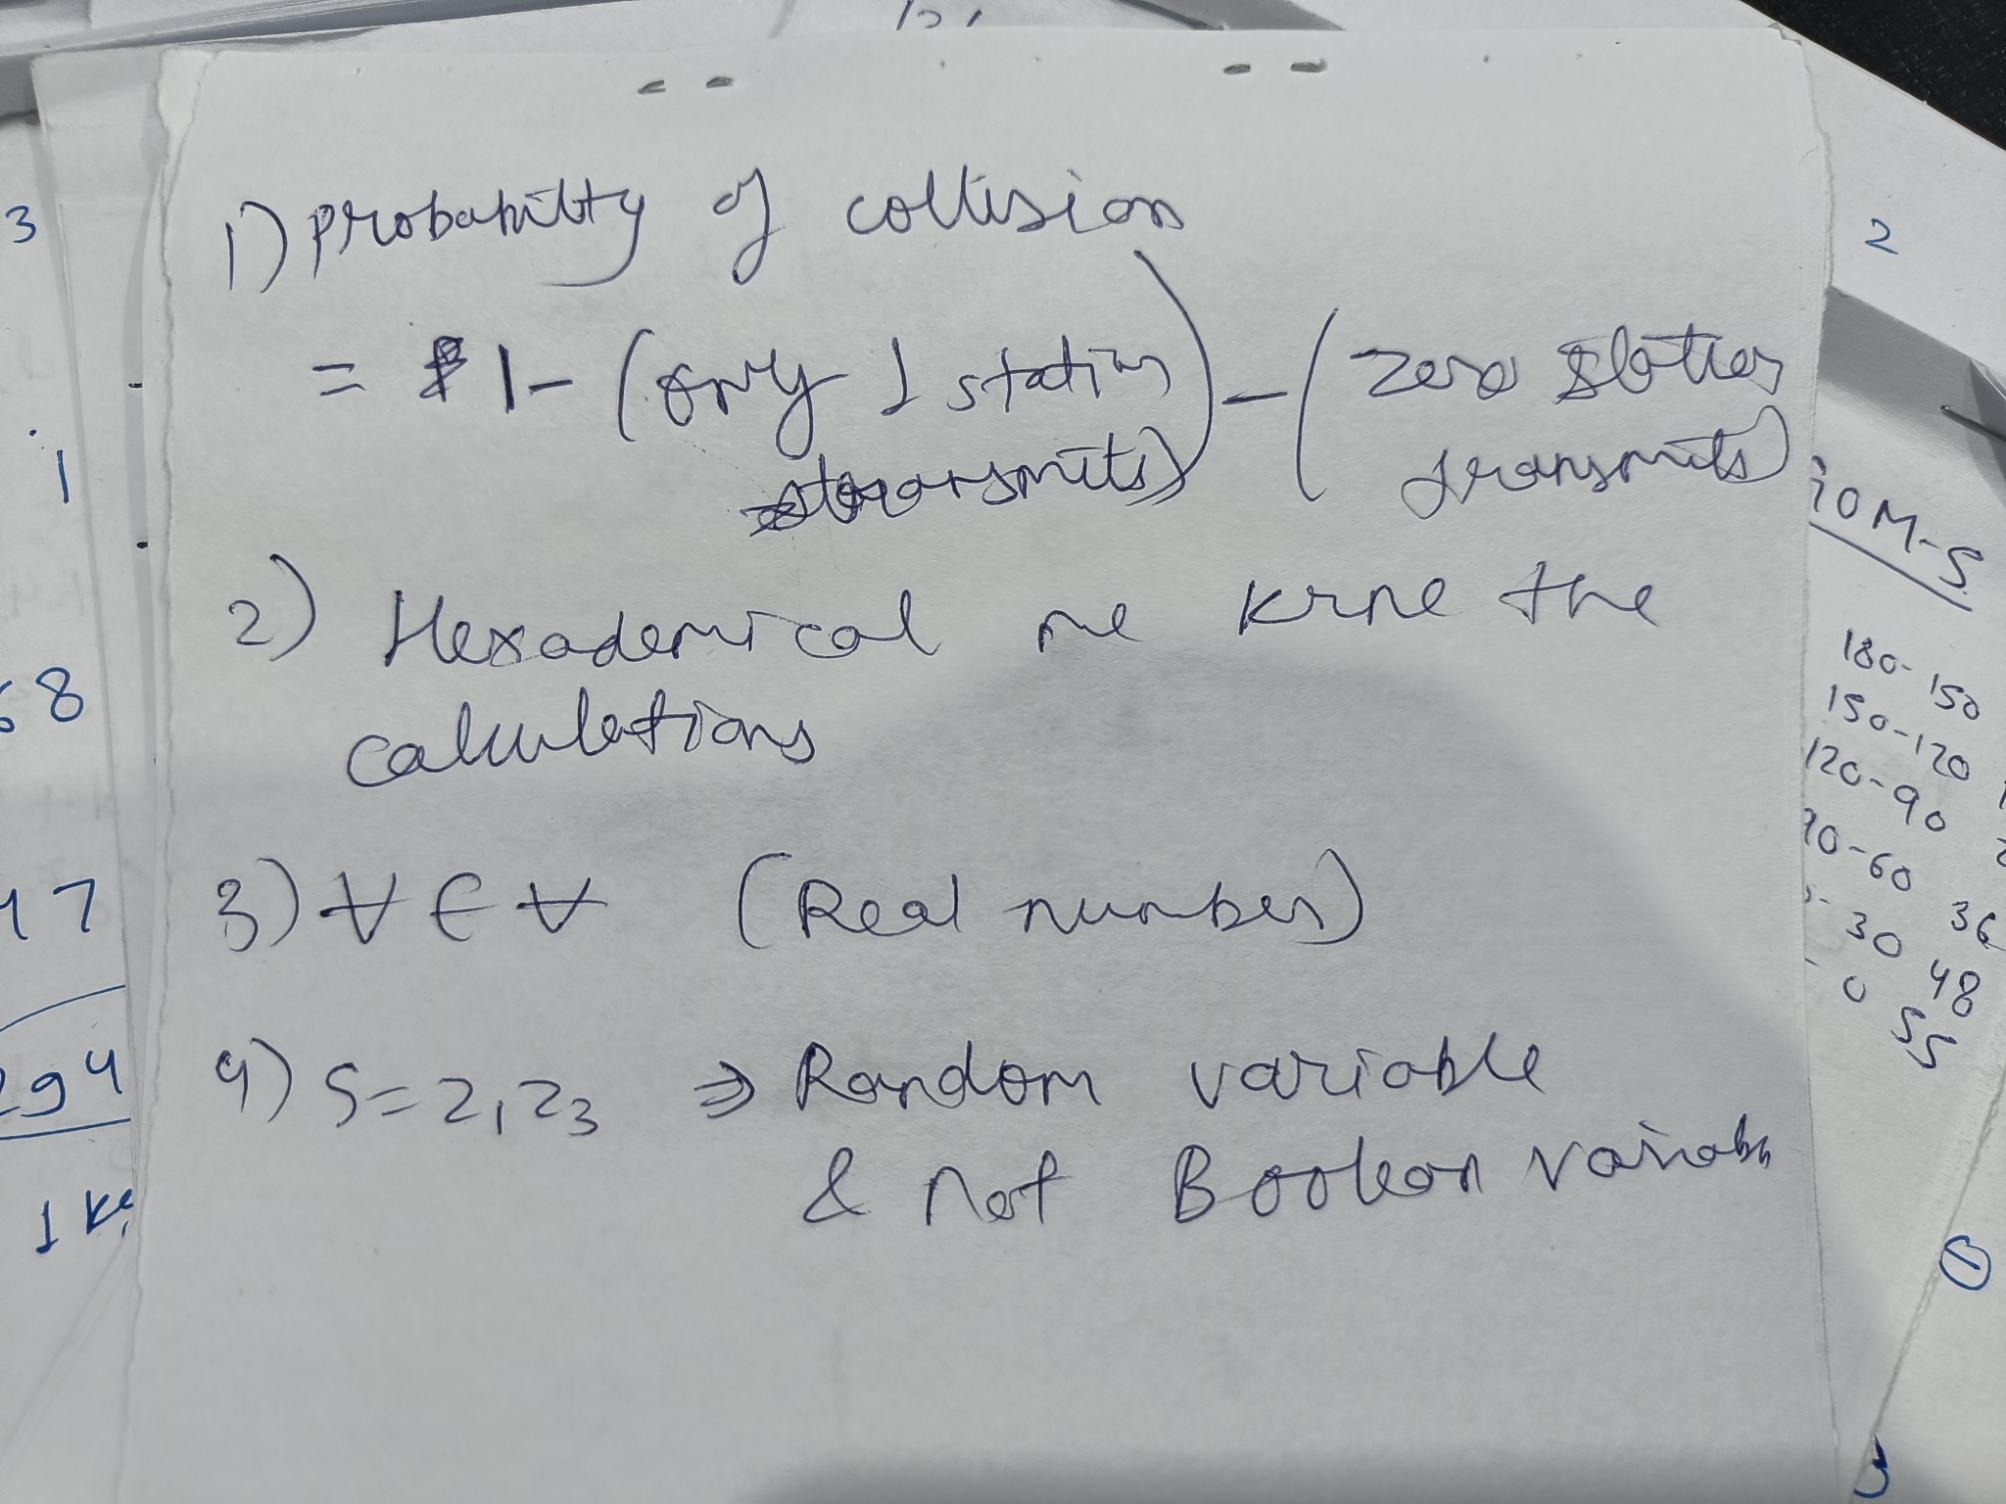 1) probability of collision
= 1 - (only 1 station transmits) - (zero station transmits)
2) Hexademical me krne the
calculations
3) ∀ ∈ ∀ (Real number)
4) S = Z1Z3 ⇒ Random variable
& not Boolean variable
3
1
68
47
294
1 kg
2
iom-S
180-150
150-120
120-90
90-60
36
30
48
0
55
1